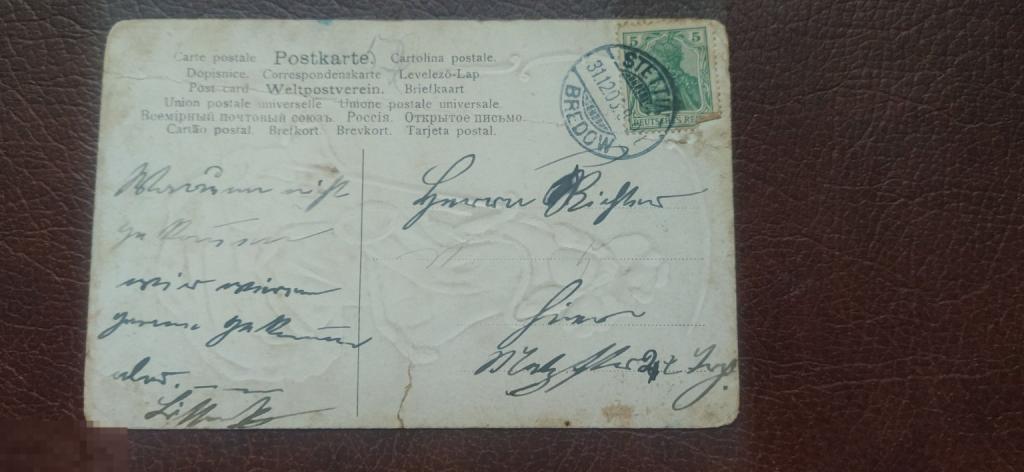 Carte postale Postkarte. Cartolina postale.
Dopisnice. Correspondenzkarte Levelező-Lap
Post card Weltpostverein. Briefkaart
Union postale universelle Unione postale universale.
Всемірный почтовый союзъ. Россія. Открытое письмо.
Cartão postal. Brefkort. Brevkort. Tarjeta postal.
5 5
DEUTSCHES REICH
STETTIN
31.12.05
BREDOW
Warum nicht
gekommen
wir wären
gerne gekommen
aber.
Herrn Richter
Hier